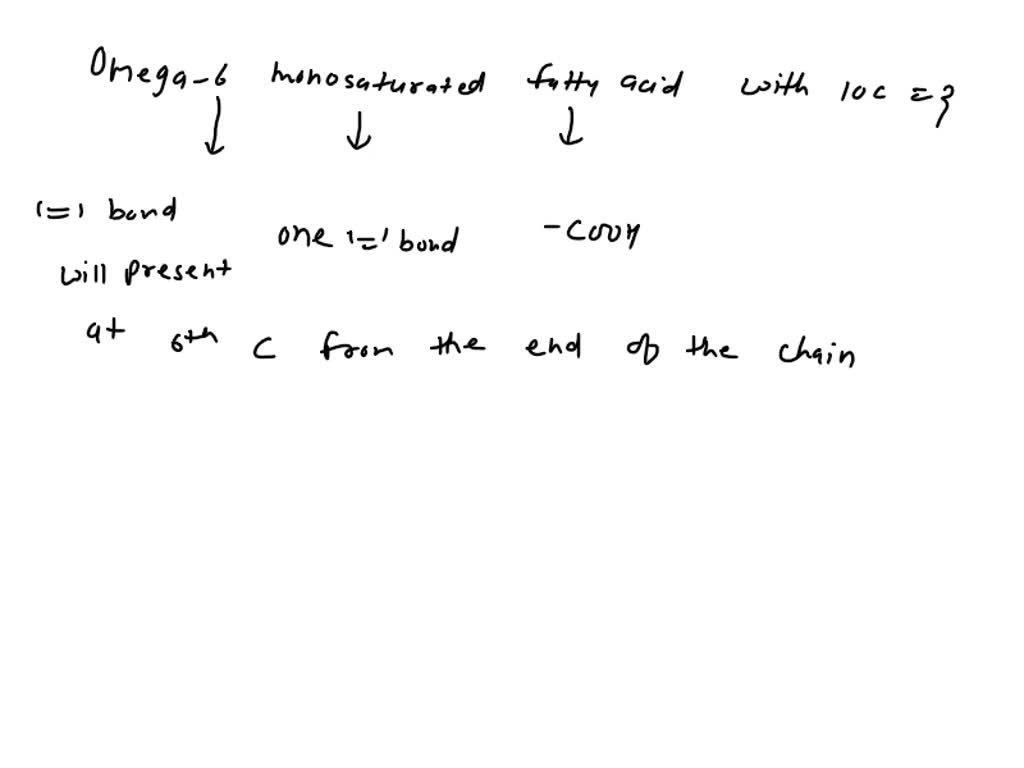 Omega-6 monosaturated fatty acid with 10C = ?
↓ ↓ ↓
'=' bond one '=' bond -COOH
will present
at 6th C from the end of the chain